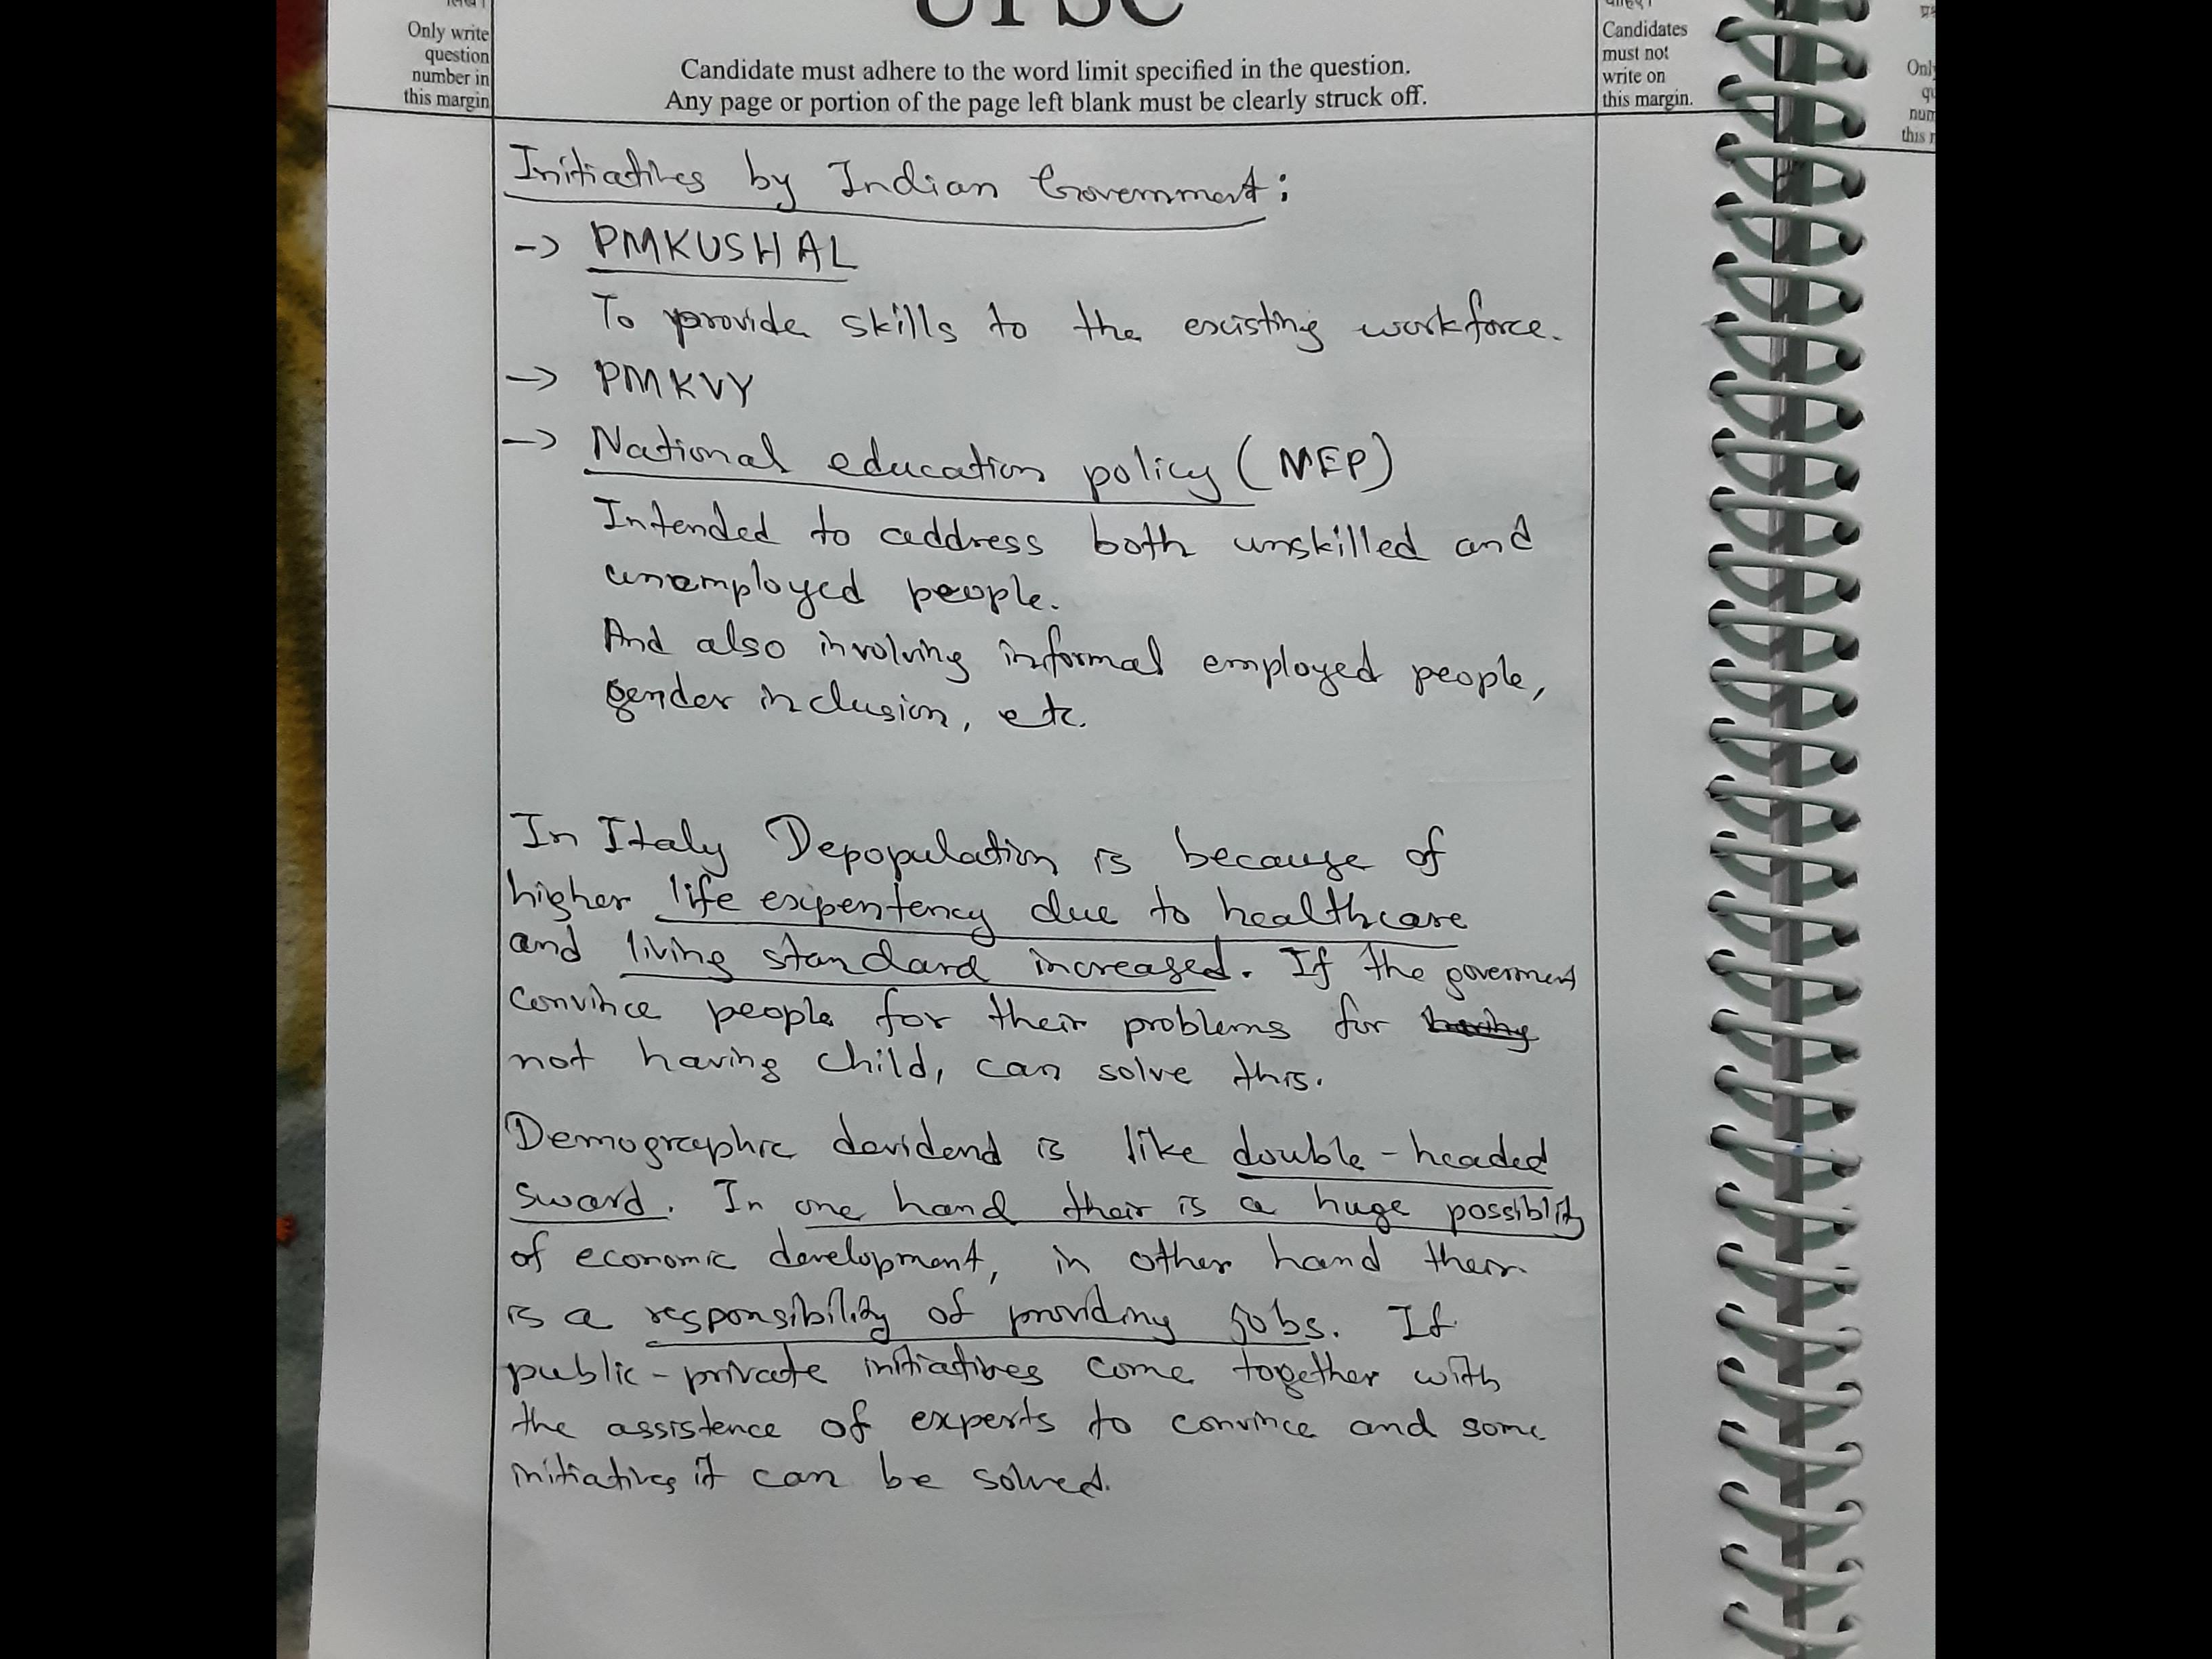 लिखें।
Only write
question
number in
this margin
UPSC
Candidate must adhere to the word limit specified in the question.
Any page or portion of the page left blank must be clearly struck off.
Candidates
must not
write on
this margin.
Initiatives by Indian Government:
-> PMKUSHAL
To provide skills to the existing workforce.
-> PMKVY
-> National education policy (NEP)
Intended to address both unskilled and
unemployed people.
And also involving informal employed people,
gender inclusion, etc.
In Italy Depopulation is because of
higher life expentency due to healthcare
and living standard increased. If the goverment
convince people for their problems for
not having child, can solve this.
Demographic devidend is like double-headed
sword. In one hand their is a huge possiblity
of economic development, in other hand their
is a responsibility of providing jobs. If
public-private initiatives come together with
the assistence of experts to convince and some
initiatives it can be solved.